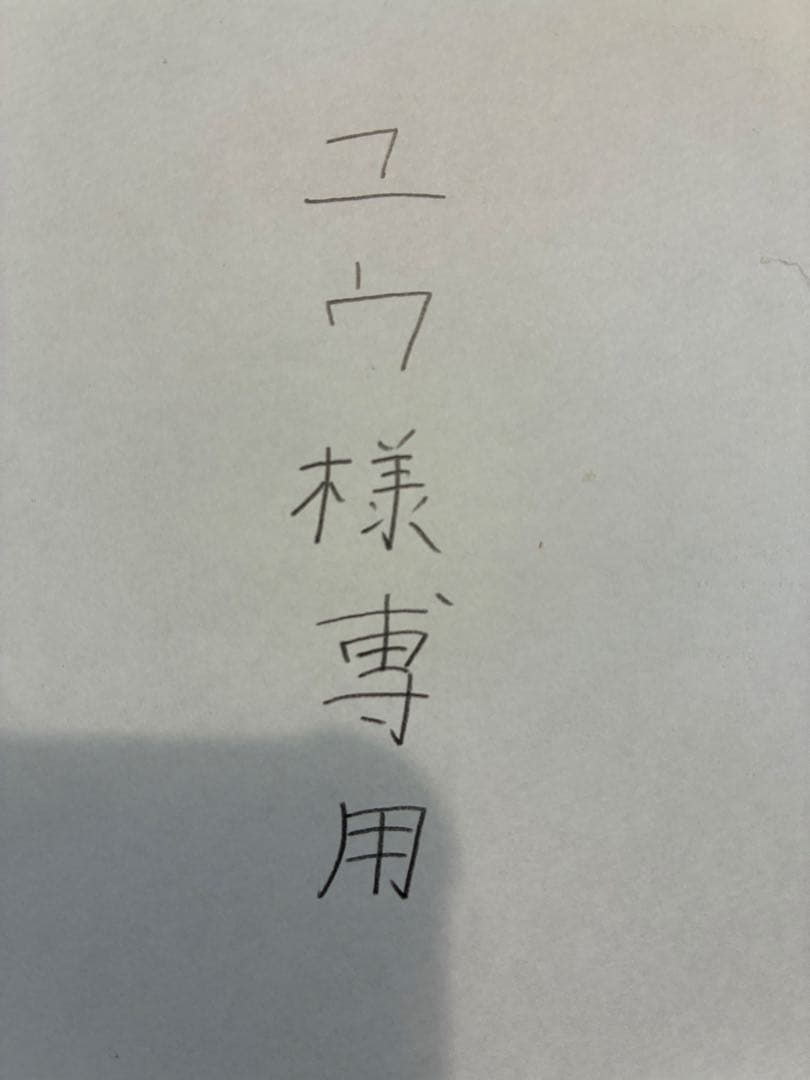 ユウ様専用